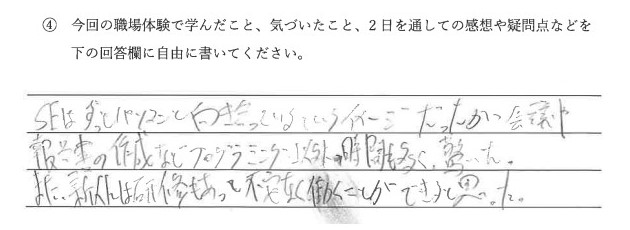 ④ 今回の職場体験で学んだこと、気づいたこと、2日を通しての感想や疑問点などを
下の回答欄に自由に書いてください。
SEはずっとパソコンと向き合っているというイメージだったが、会議や
報告書の作成などプログラミング以外の時間も多く、驚いた。
また、新人は研修もあって不安なく働くことができると思った。